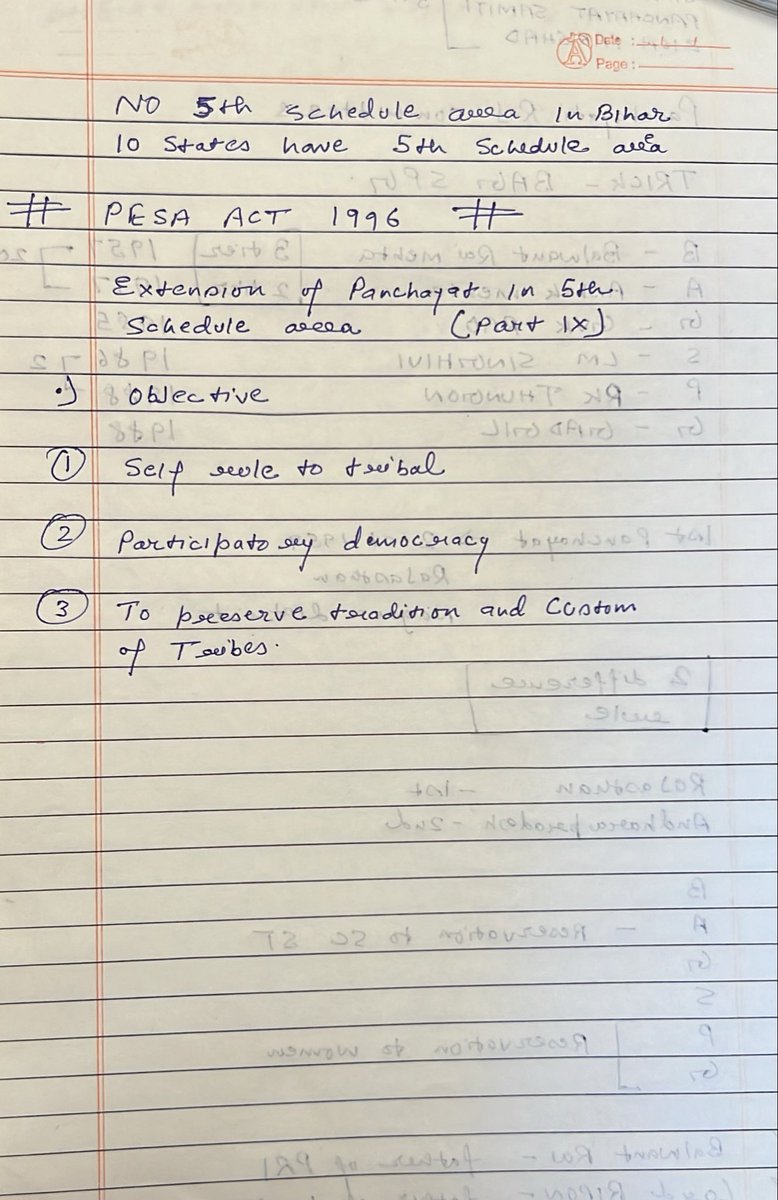 Date :
Page :
NO 5th schedule area in Bihar
10 States have 5th Schedule area
# PESA ACT 1996 #
Extension of Panchayat in 5th
Schedule area (Part IX)
•) Objective
① Self rule to tribal
② Participatory democracy
③ To preserve tradition and Custom
of Tribes.